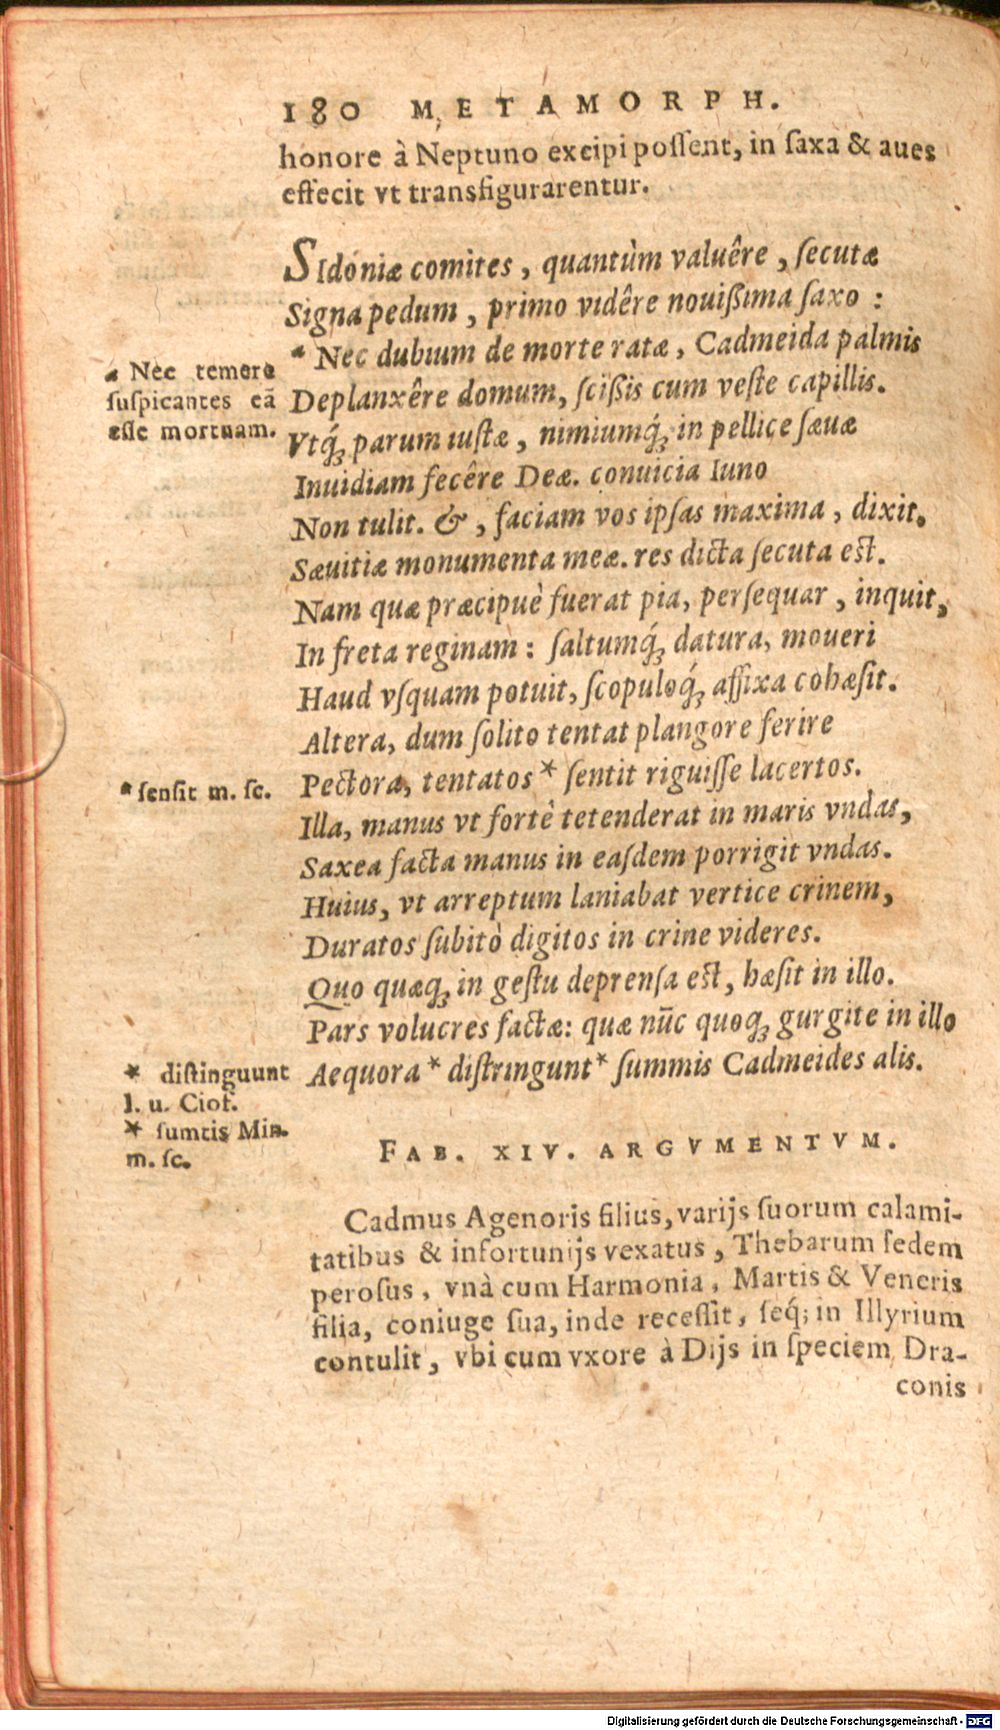 180 METAMORPH.
honore à Neptuno excipi poſſent, in ſaxa & aues
effecit vt transfigurarentur.
SIdoniæ comites, quantùm valuêre, ſecutæ
Signa pedum, primo vidêre nouißima ſaxo:
ᵃ Nec dubium de morte ratæ, Cadmeida palmis
Deplanxêre domum, ſcißis cum veſte capillis.
Vtq́; parum iuſtæ, nimiumq́; in pellice ſæuæ
Inuidiam fecêre Deæ. conuicia Iuno
Non tulit. &, faciam vos ipſas maxima, dixit,
Sæuitiæ monumenta meæ. res dicta ſecuta eſt.
Nam quæ præcipuè fuerat pia, perſequar, inquit,
In freta reginam: ſaltumq́; datura, moueri
Haud vſquam potuit, ſcopuloq́; affixa cohæſit.
Altera, dum ſolito tentat plangore ferire
Pectora, tentatos * ſentit riguiſſe lacertos.
Illa, manus vt fortè tetenderat in maris vndas,
Saxea facta manus in eaſdem porrigit vndas.
Huius, vt arreptum laniabat vertice crinem,
Duratos ſubitò digitos in crine videres.
Quo quæq; in geſtu deprenſa eſt, hæſit in illo.
Pars volucres factæ: quæ nũc quoq; gurgite in illo
Aequora * diſtringunt * ſummis Cadmeides alis.
ᵃ Nec temere
ſuſpicantes eã
eſſe mortuam.
* ſenſit m. ſc.
* diſtinguunt
l. u. Ciof.
* ſumtis Min.
m. ſc.
FAB. XIV. ARGVMENTVM.
Cadmus Agenoris filius, varijs ſuorum calami-
tatibus & infortunijs vexatus, Thebarum ſedem
peroſus, vnà cum Harmonia, Martis & Veneris
filia, coniuge ſua, inde receſſit, ſeq́; in Illyrium
contulit, vbi cum vxore à Dijs in ſpeciem Dra-
conis
Digitalisierung gefördert durch die Deutsche Forschungsgemeinschaft - DFG